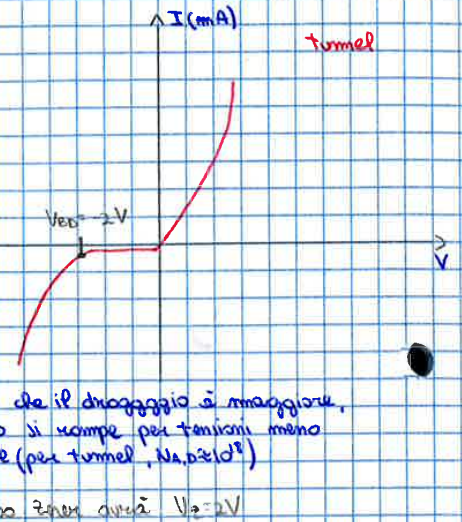 I(mA)
tunnel
VBD=-2V
V
che il droggaggio è maggiore,
si rompe per tensioni meno
(per tunnel, NA,D≈10¹⁸)
zener avrà Vz=2V